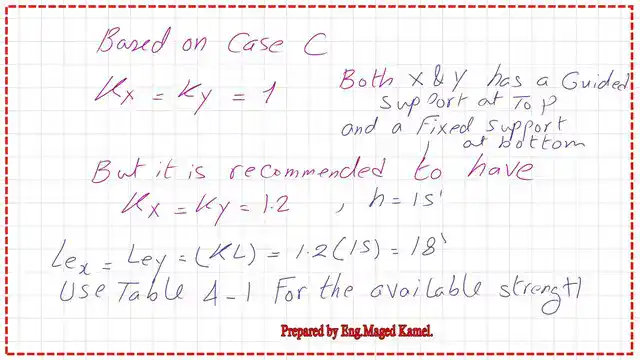 Based on Case C
Kx = Ky = 1
Both X & Y has a Guided
support at Top
and a Fixed support
at bottom
But it is recommended to have
Kx = Ky = 1.2 , h = 15'
Lex = Ley = (KL) = 1.2(15) = 18'
Use Table 4-1 For the available strength
Prepared by Eng.Maged Kamel.